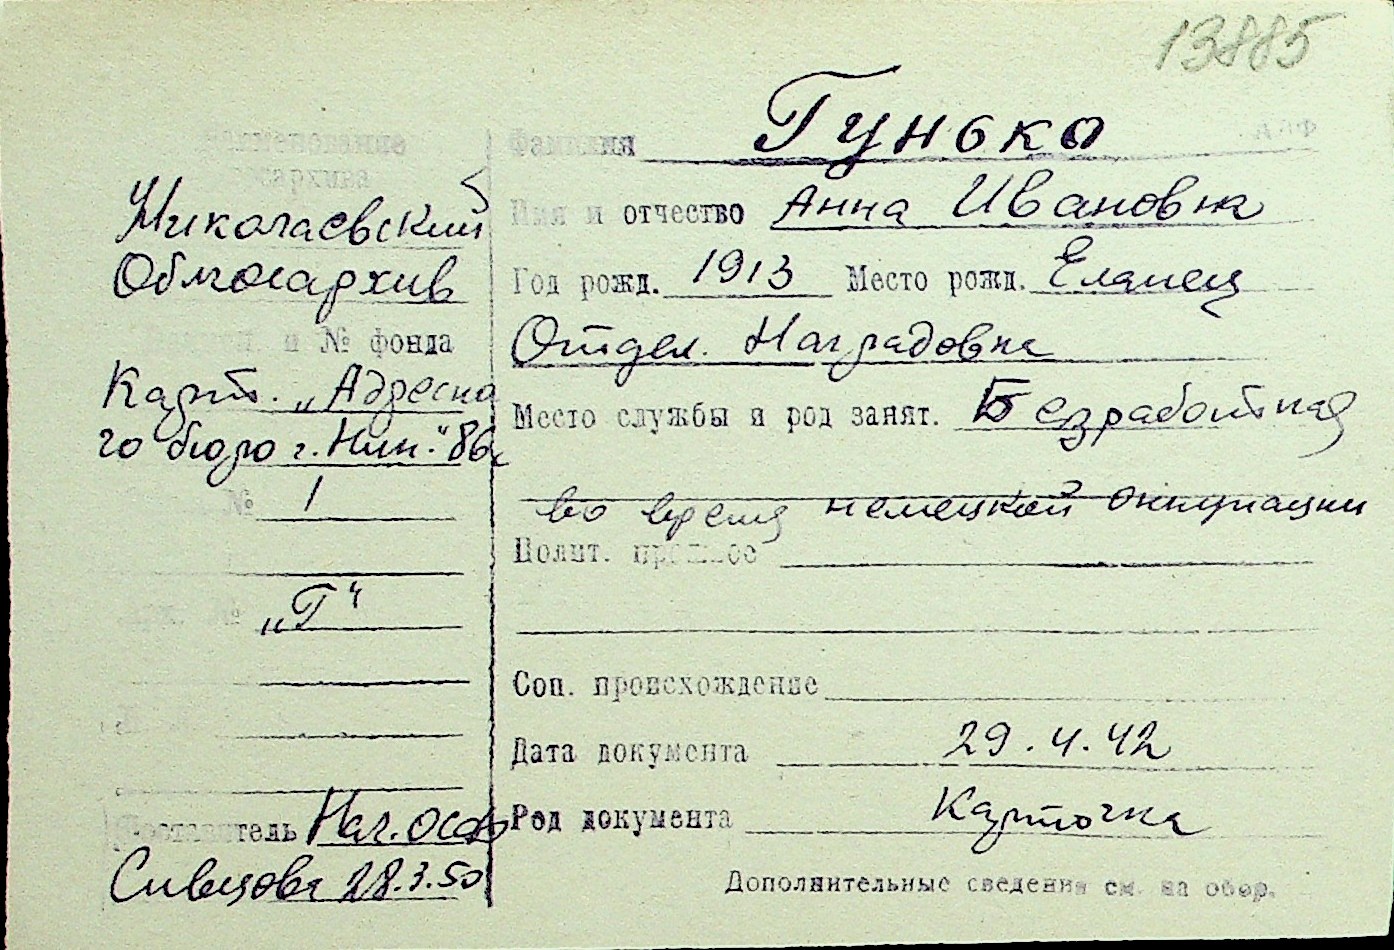 13885
Наименование
госархива
Николаевский
Облгосархив
№ фонда
Карт. „Адресно
го бюро г. Ник." 86
№ 1
Арх. № „Г"
Составитель Нач. ОСФ
Сивцова 28.3.50
Фамилия Гунько
Имя и отчество Анна Ивановна
Год рожд. 1913 Место рожд. Еланец
Отдел.
Место службы и род занят. Безработная
во время немецкой оккупации
Полит. прошлое
Соц. происхождение
Дата документа 29.4.42
Род документа Карточка
Дополнительные сведения см. на обор.